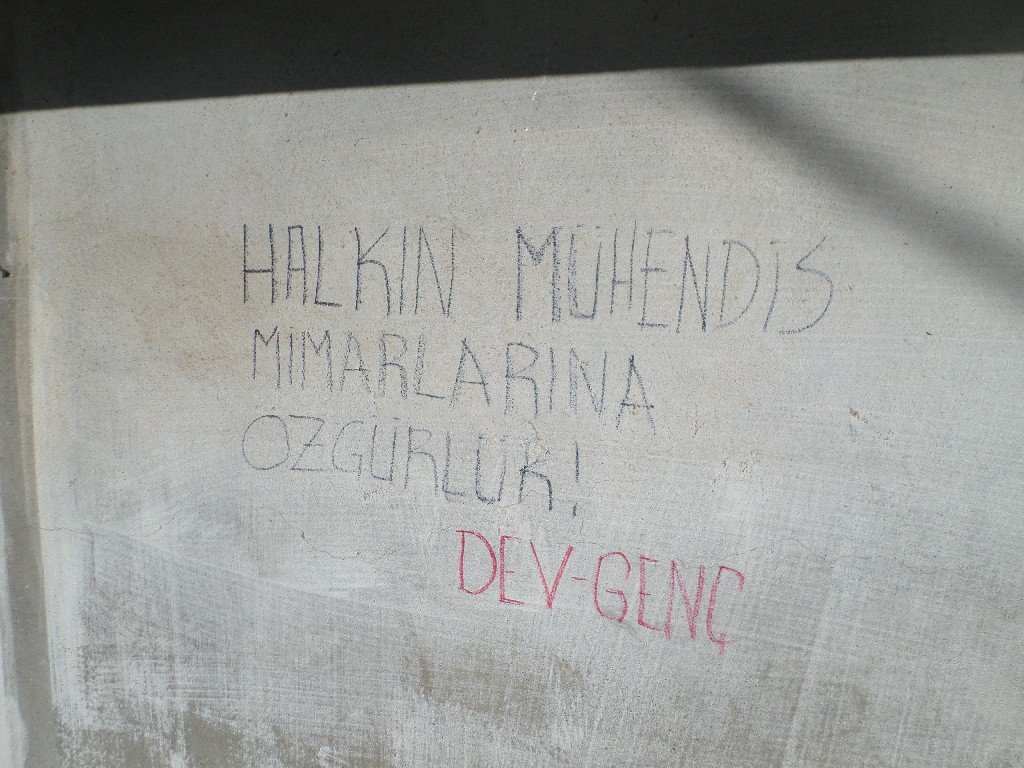 HALKIN MÜHENDİS
MİMARLARINA
ÖZGÜRLÜK!
DEV-GENÇ